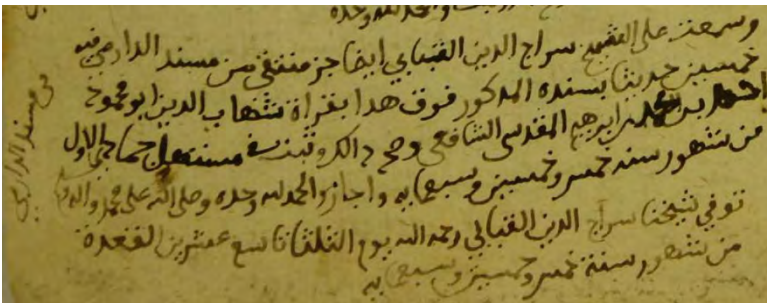 والحمد لله وحده
وسمعت على الشيخ سراج الدين القبابي ايضا جز منتقى من مسند الدارمي فيه
خمسين حديثا بسنده المذكور فوق هذا بقراة شهاب الدين ابو محمود
احمد بن محمد بن ابرهيم المقدسي الشافعي وصح ذلك وثبت في مستهل جمادى الاول
من شهور سنة خمس وخمسين وسبعمايه واجاز والحمد لله وحده وصلى الله على محمد واله وسلم
توفي شيخنا سراج الدين القبابي رحمه الله يوم الثلثا تاسع عشرين القعدة
من شهور سنة خمس وخمسين وسبعمايه
من مسند الدارمي